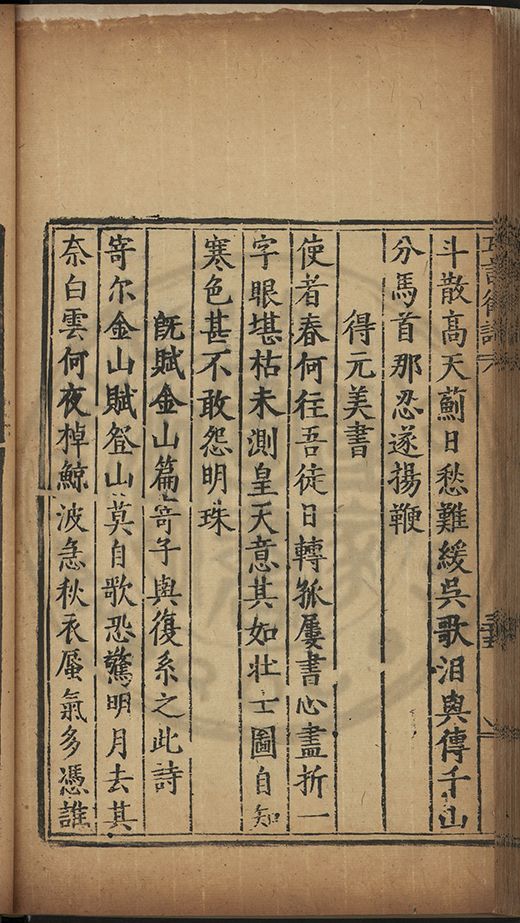 斗散高天薊日愁難緩吳歌泪與傳千山
分馬首那忍遂揚鞭
得元美書
使者春何往吾徒日轉孤屢書心盡折一
字眼堪枯未測皇天意其如壯士圖自知
寒色甚不敢怨明珠
旣賦金山篇寄子與復系之此詩
寄尔金山賦登山莫自歌恐驚明月去其
奈白雲何夜棹鯨波急秋衣蜃氣多憑誰